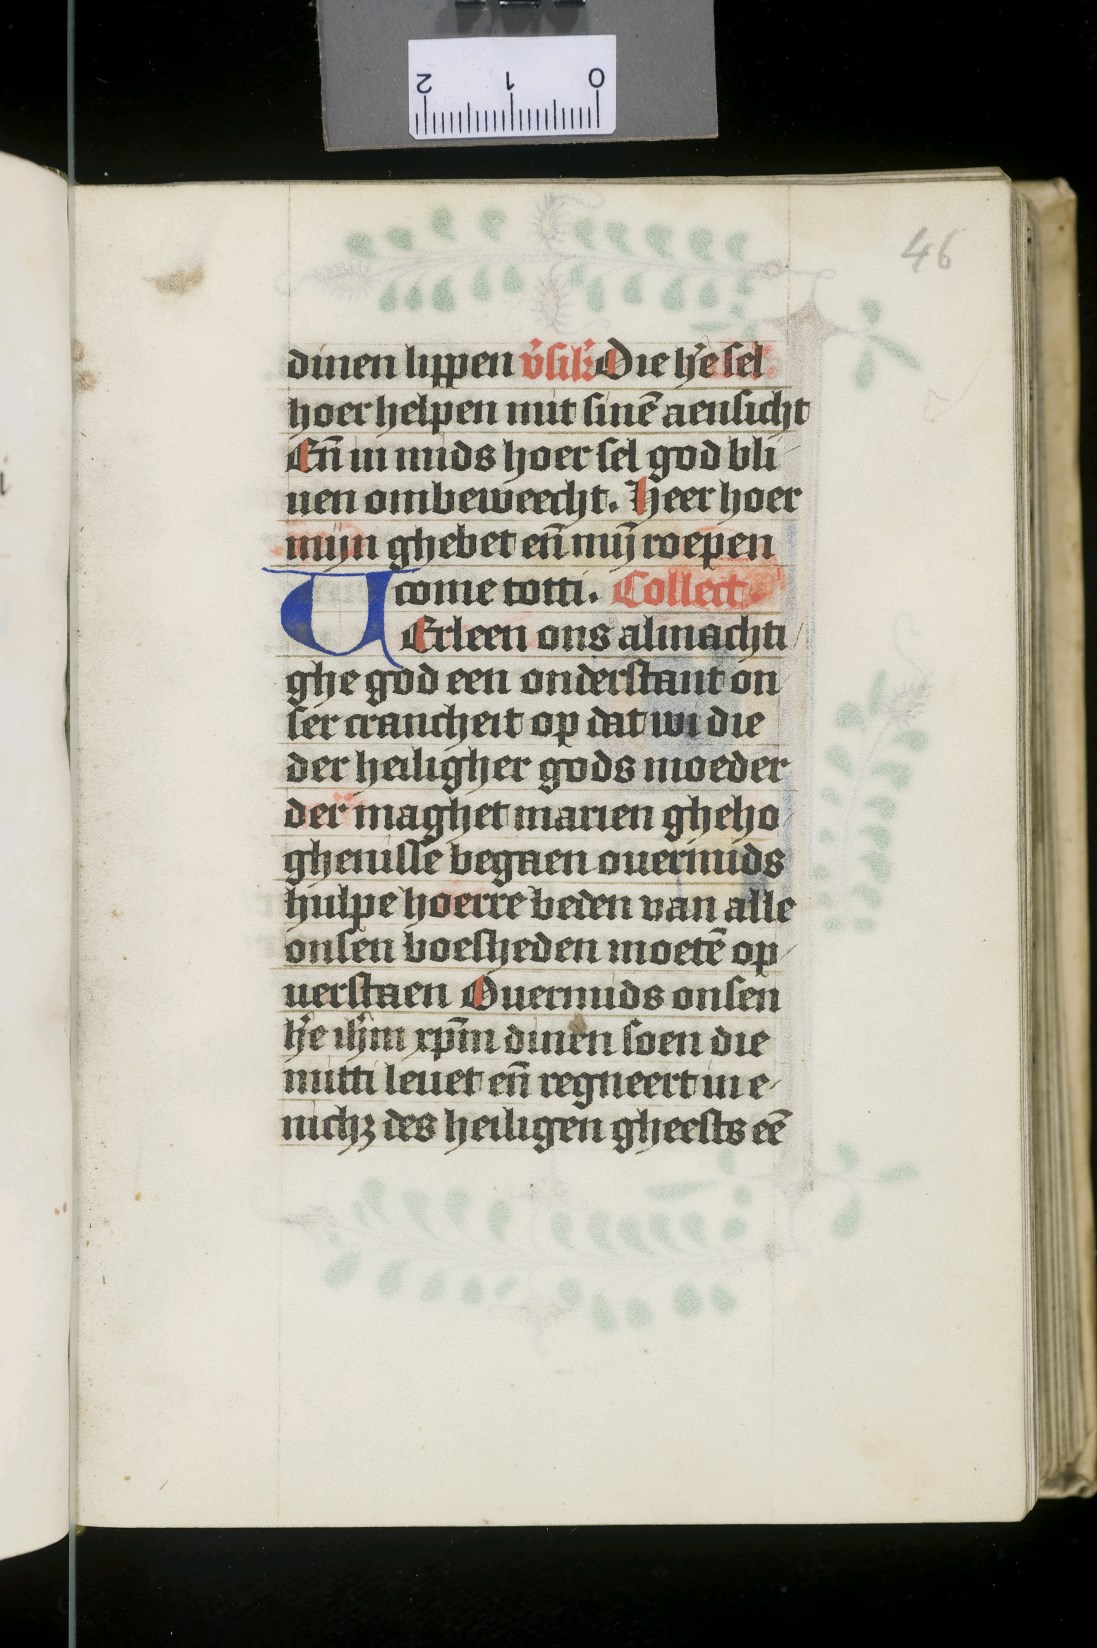 46
dinen lippen v̄sik̄ Die h̄e sel
hoer helpen mit sinē aensicht
En̄ in mids hoer sel god bli
uen ombeweecht. Heer hoer
mijn ghebet en̄ mij roepen
come totti. Collect
VErleen ons almachti
ghe god een onderstant on
ser crancheit op dat wi die
der heiligher gods moeder
der maghet marien gheho
ghenisse begaen ouermids
hulpe hoerre beden van alle
onsen boesheden moetē op
uerstaen Ouermids onsen
h̄e ih̄m xp̄m dinen soen die
mitti leuet en̄ regneert in e
nichꝫ des heiligen gheests eē
2 1 0